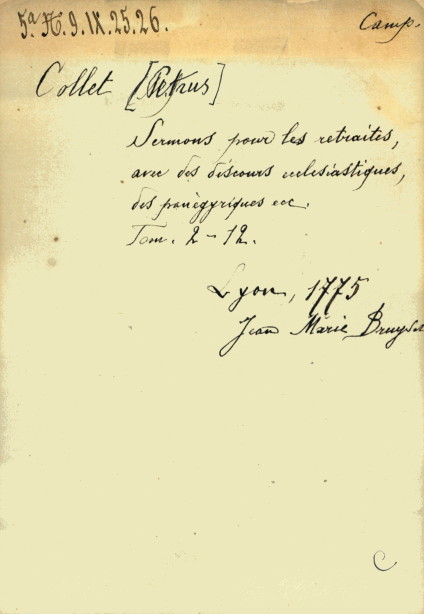 5.ª A. 9. IX. 25. 26.
Camp.
Collet [Petrus]
Sermons pour les retraites,
avec des discours ecclesiastiques,
des panègyriques ecc.
Tom. 2 - 12.
Lyon, 1775
Jean Marie Bruyset
C